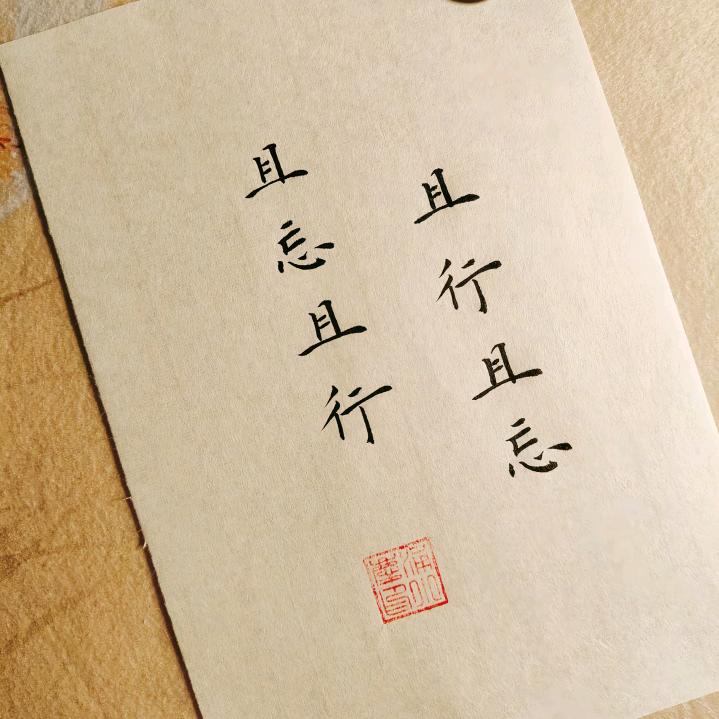 且行且忘
且忘且行